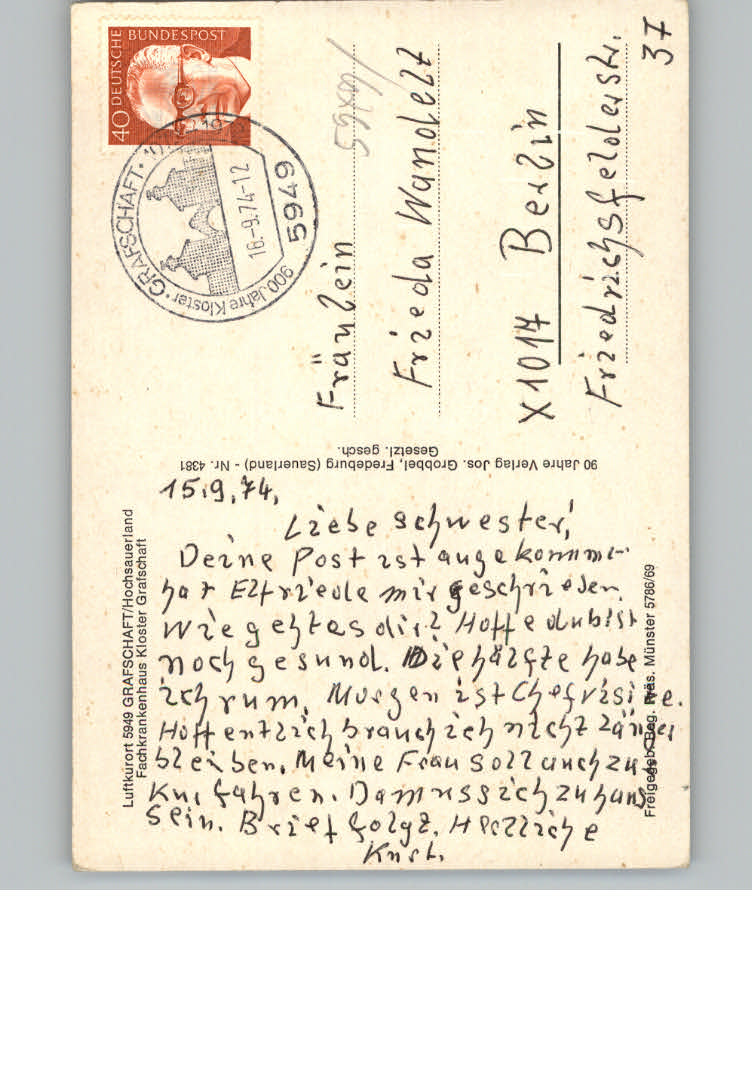 DEUTSCHE BUNDESPOST
40
900 Jahre Kloster · GRAFSCHAFT ·
16.-9.74-12
5949
Fräulein
Frieda Wandelt
X1017 Berlin
Friedrichsfelderstr.
37
90 Jahre Verlag Jos. Grobbel, Fredeburg (Sauerland) - Nr. 4381
Gesetzl. gesch.
Luftkurort 5949 GRAFSCHAFT/Hochsauerland
Fachkrankenhaus Kloster Grafschaft
15.9.74.
Liebe Schwester!
Deine Post ist angekommen
hat Elfriede mir geschrieben.
Wie geht es dir? Hoffe du bist
noch gesund. Die hälfte habe
ich rum. Morgen ist Chefvisite.
Hoffentlich brauch ich nicht länger
bleiben. Meine Frau soll auch zu
Kur fahren. Da muss ich zuhaus
sein. Brief folgt. Herzliche
Kurt.
Freigegeb. Reg. Präs. Münster 5786/69